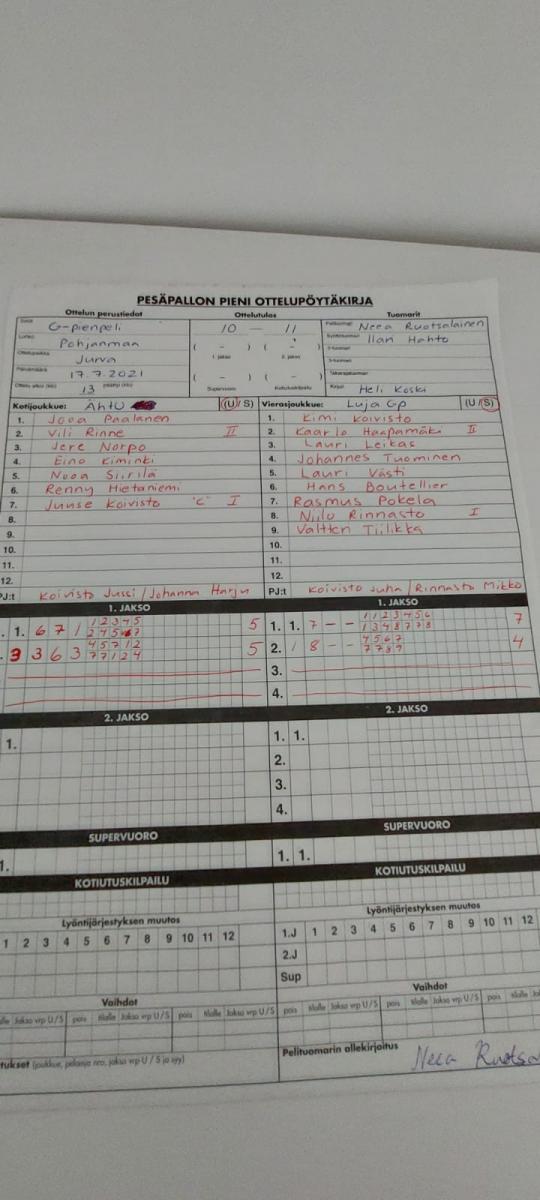 PESÄPALLON PIENI OTTELUPÖYTÄKIRJA
Ottelun perustiedot Ottelutulos Tuomarit
G-pienpeli 10 – 11 Pelituomari Neea Ruotsalainen
Lohko Pohjanmaa Syöttötuomari Ilari Hahto
Ottelupaikka Jurva ( – ) ( – ) 2-tuomari
1. jakso 2. jakso 3-tuomari
Päivämäärä 17.7.2021 ( – ) ( – ) Takarajatuomari
Ottelu alkoi (klo) 13 päättyi (klo) Supervuoro Kotiutuskilpailu Kirjuri Heli Koski
Kotijoukkue: ÄhtU (U/S) Vierasjoukkue: Luja Gp (U/S)
1. Jooa Paalanen 1. Kimi Koivisto
2. Vili Rinne II 2. Kaarlo Haapamäki II
3. Jere Norpo 3. Lauri Leikas
4. Eino Kiminki 4. Johannes Tuominen
5. Nooa Siirilä 5. Lauri Västi
6. Renny Hietaniemi 6. Hans Boutellier
7. Juuse Koivisto "C" I 7. Rasmus Pokela
8. 8. Niilo Rinnasto I
9. 9. Valtteri Tiilikka
10. 10.
11. 11.
12. 12.
PJ:t Koivisto Jussi / Johanna Harju PJ:t Koivisto Juha / Rinnasto Mikko
1. JAKSO 1. JAKSO
1. 6 7 1 12345 5 1. 1. 7 – – 1123456 7
1348778
3 3 6 3 45712 5 2. 1 8 – – 4567 4
77124 7789
3.
4.
2. JAKSO 2. JAKSO
1. 1. 1.
2.
3.
4.
SUPERVUORO SUPERVUORO
1. 1. 1.
KOTIUTUSKILPAILU KOTIUTUSKILPAILU
Lyöntijärjestyksen muutos Lyöntijärjestyksen muutos
1 2 3 4 5 6 7 8 9 10 11 12 1.J 1 2 3 4 5 6 7 8 9 10 11 12
2.J
Sup
Vaihdot Vaihdot
tilalle Jakso vrp U/S pois tilalle Jakso vrp U/S pois tilalle Jakso vrp U/S pois tilalle Jakso vrp U/S pois tilalle Jakso vrp U/S pois tilalle
(joukkue, pelaajan nro, jakso vrp U / S ja syy) Pelituomarin allekirjoitus Neea